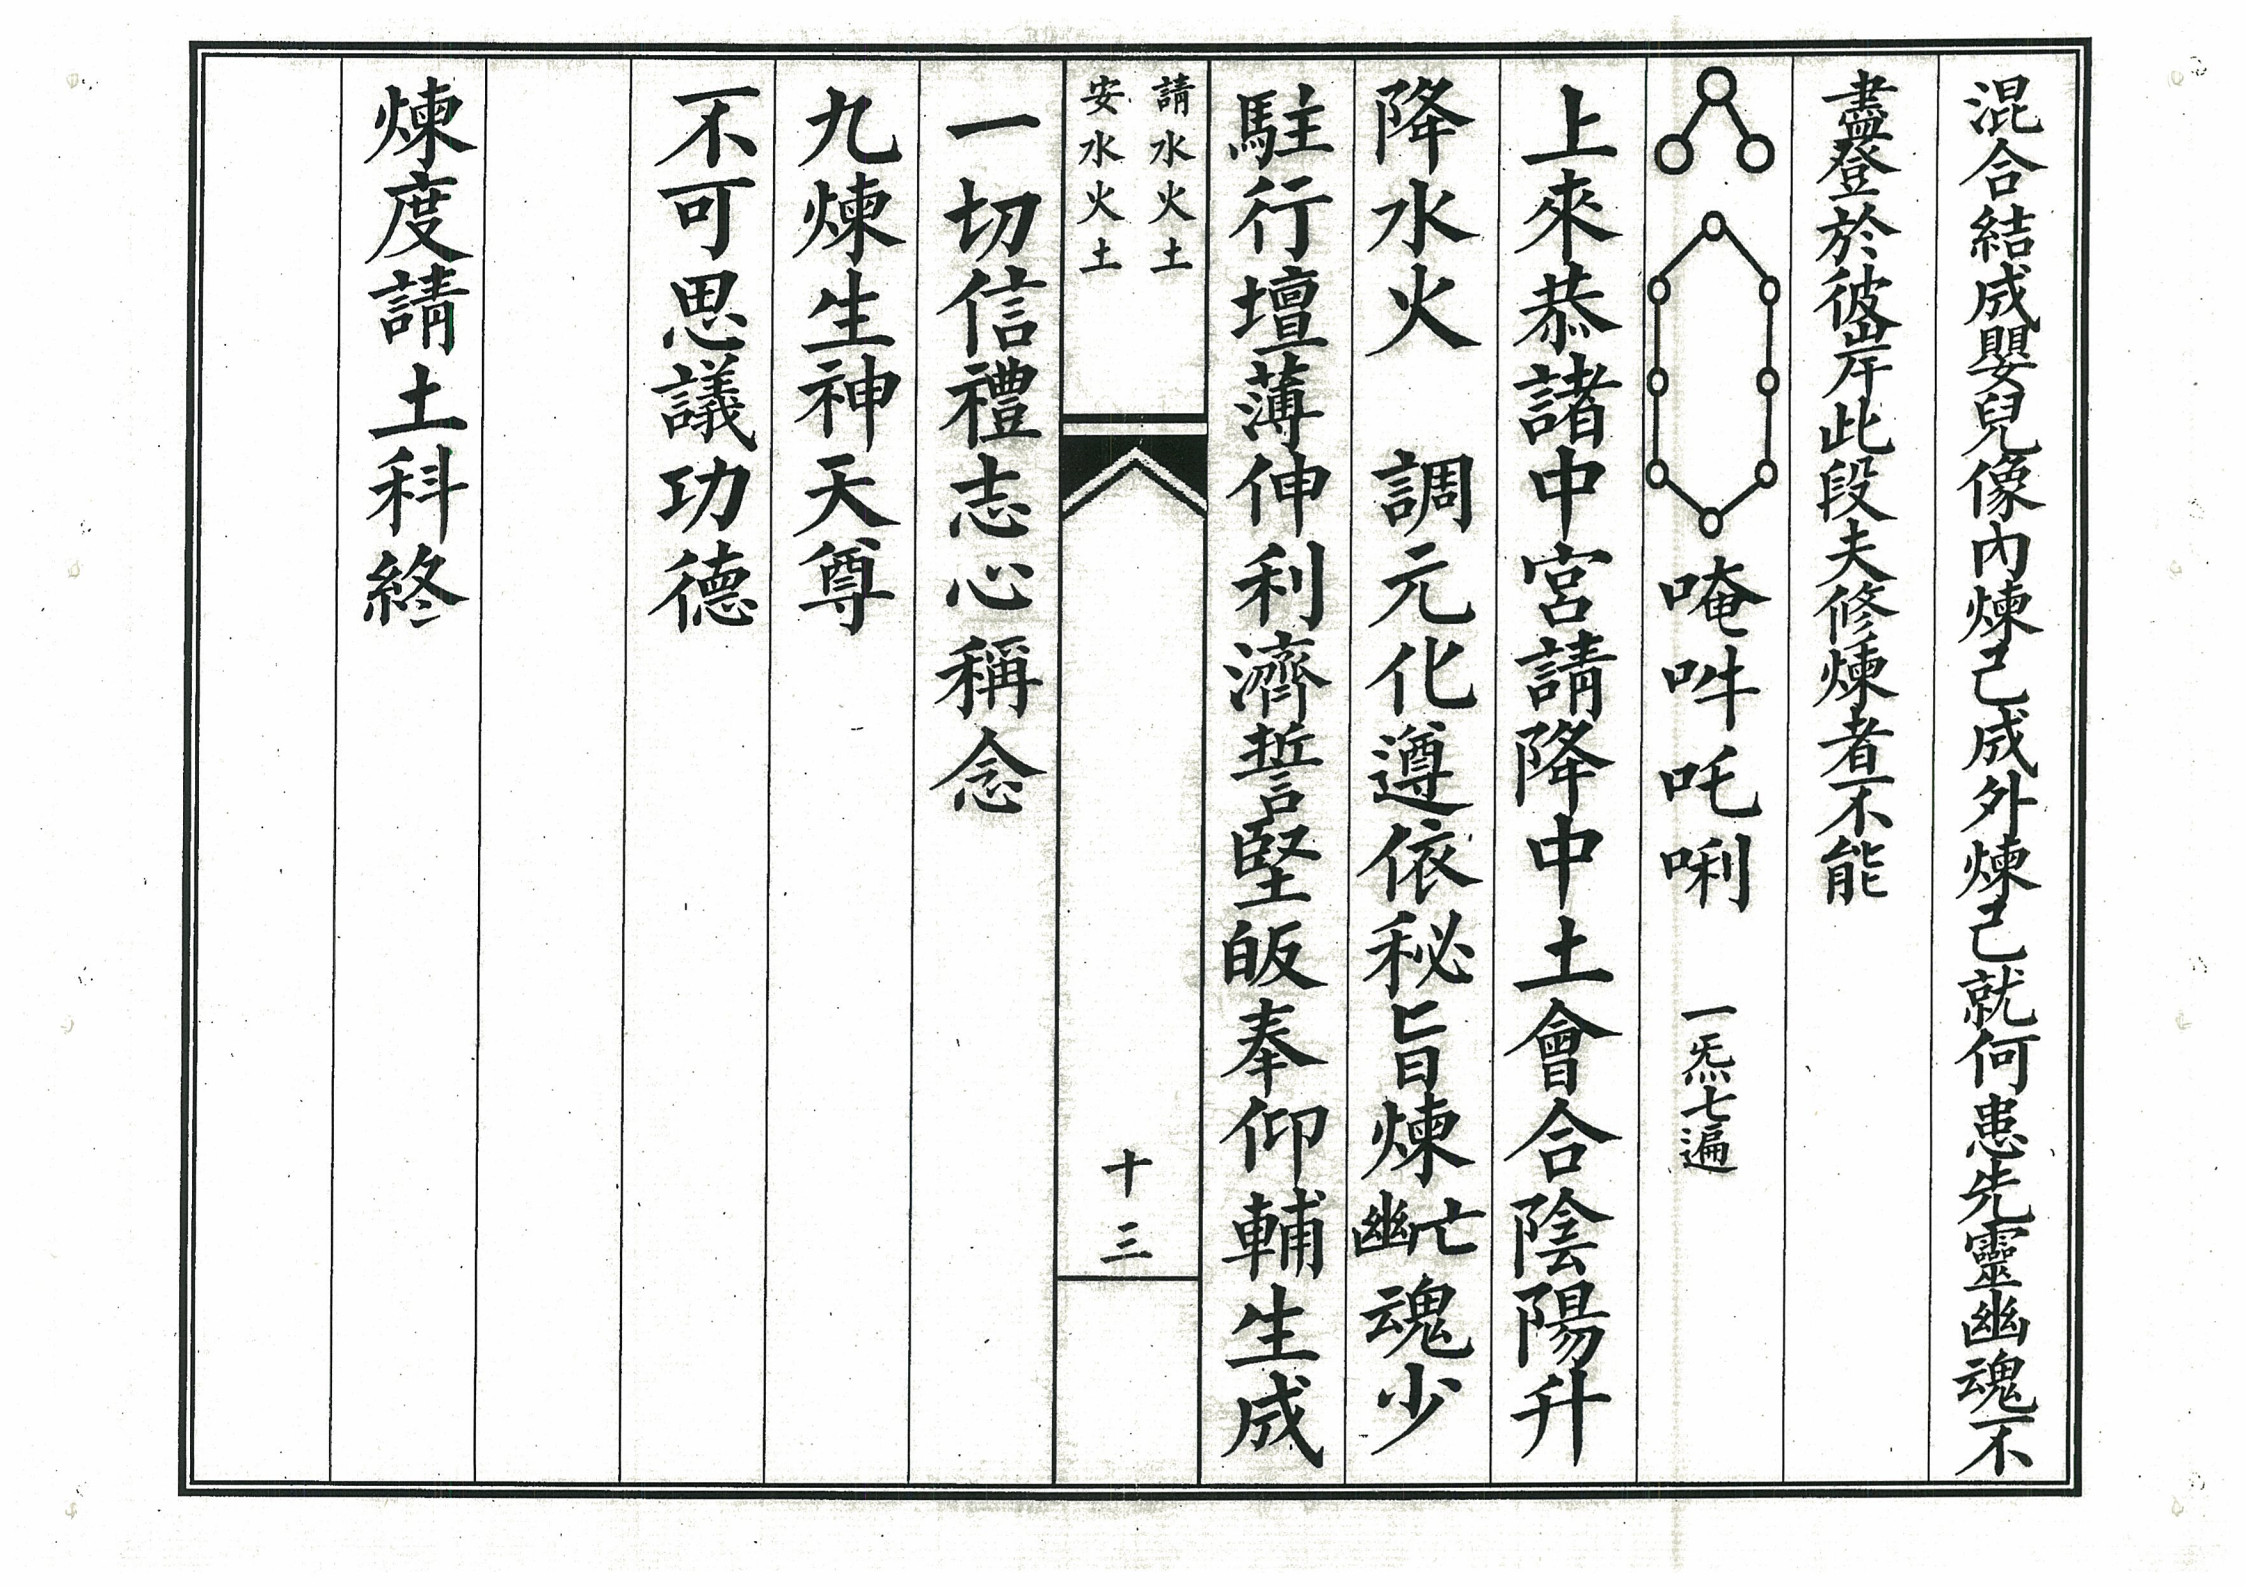 混合結成嬰兒像內煉己成外煉己就何患先靈幽魂不
盡登於彼岸此段夫修煉者不能
唵吽吒唎 一炁七遍
上來恭諸中宮請降中土會合陰陽升
降水火 調元化遵依秘旨煉幽亡魂少
駐行壇薄伸利濟誓堅皈奉仰輔生成
請水火土
安水火土
十三
一切信禮志心稱念
九煉生神天尊
不可思議功德
煉度請土科終